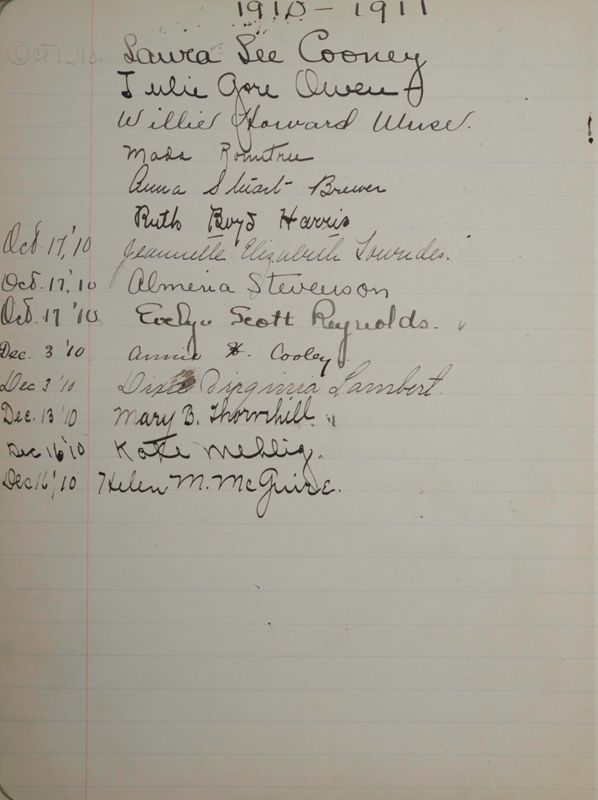 1910 - 1911
Oct 1, '10. Laura Lee Cooney
Julie Gore Owen
Willie Howard Muse.
Mada Rountree
Anna Stuart Brewer
Ruth Boyd Harris
Oct. 17, '10 Jeannelle Elizabeth Lowndes.
Oct. 17, '10 Almeria Stevenson
Oct. 17 '10 Evelyn Scott Reynolds.
Dec. 3 '10 Annie H. Cooley
Dec 3 '10 Dixie Virginia Lambert.
Dec. 13 '10 Mary B. Thornhill
Dec 16 '10 Kate Mehlig.
Dec 16, '10 Helen M. McGuire.